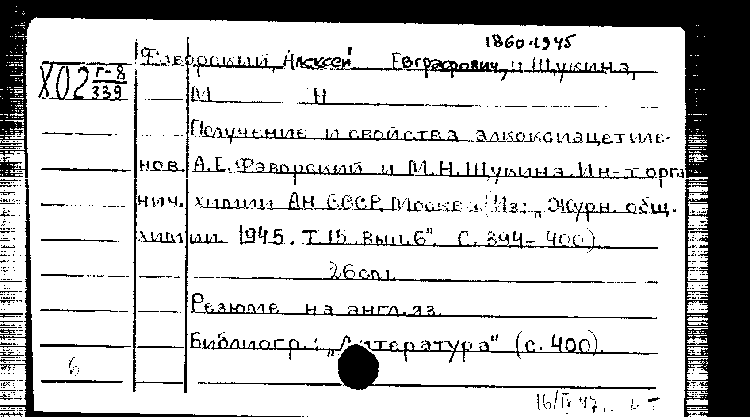 1860-1945
Х02 Г-8/339
Фаворский, Алексей Евграфович, и Щукина,
М Н
Получение и свойства алкоксиацетиле-
нов. А.Е. Фаворский и М.Н. Щукина. Ин-т орга
нич. химии АН СССР, Москва (Из: „Журн. общ.
химии 1945. Т 15. Вып. 6". С. 394-400).
26 cm.
Резюме на англ. яз.
Библиогр.: „Литература" (с. 400).
6
16/IV 47.